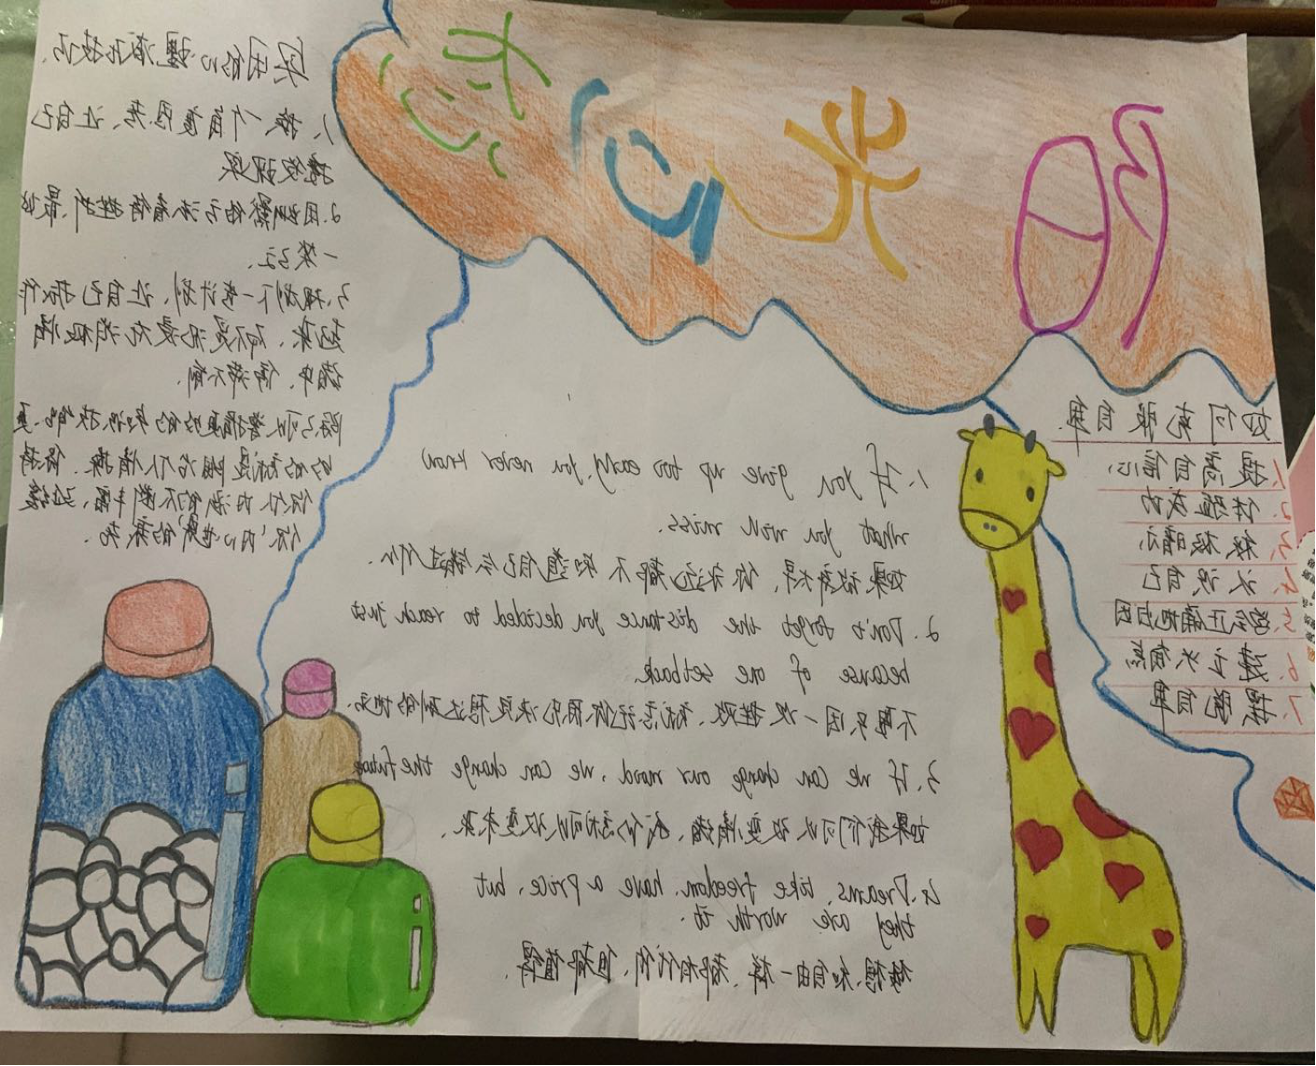 阳光心态
如何克服自卑
1.提高自信心、
2.体验成功
3.积极暗示
4.认识自己
5.学会正确地归因
6.建立
7.摆脱自卑
1、If you give up too early, you never know
what you will miss.
如果放弃太早、你永远都不知道自己会错过什么、
2.Don't forget the distance you decided to reach just
because of one setback
不要只因一次挫败、就忘记你原先决定想达到的地方、
3、If we can change our mood, we can change the future
如果我们可以改变情绪、我们就可以改变未来、
Dreams, like freedom, have a price, but
they are worth it.
梦想和自由一样、都有代价、但都值得.
实用的心理减压技巧、
1、换一个角度思考、让自己
接受现实
2.用幽默的方法看待挫折、最好
一笑了之、
3、规划下一步计划、让自己振作
起来、而不是沉浸在消极情
绪中、停滞不前、
除了可以掌握更好的知识技能、更
多的就是陶冶个人情操、使得
你的内涵不断丰富、延续
你内心世界的